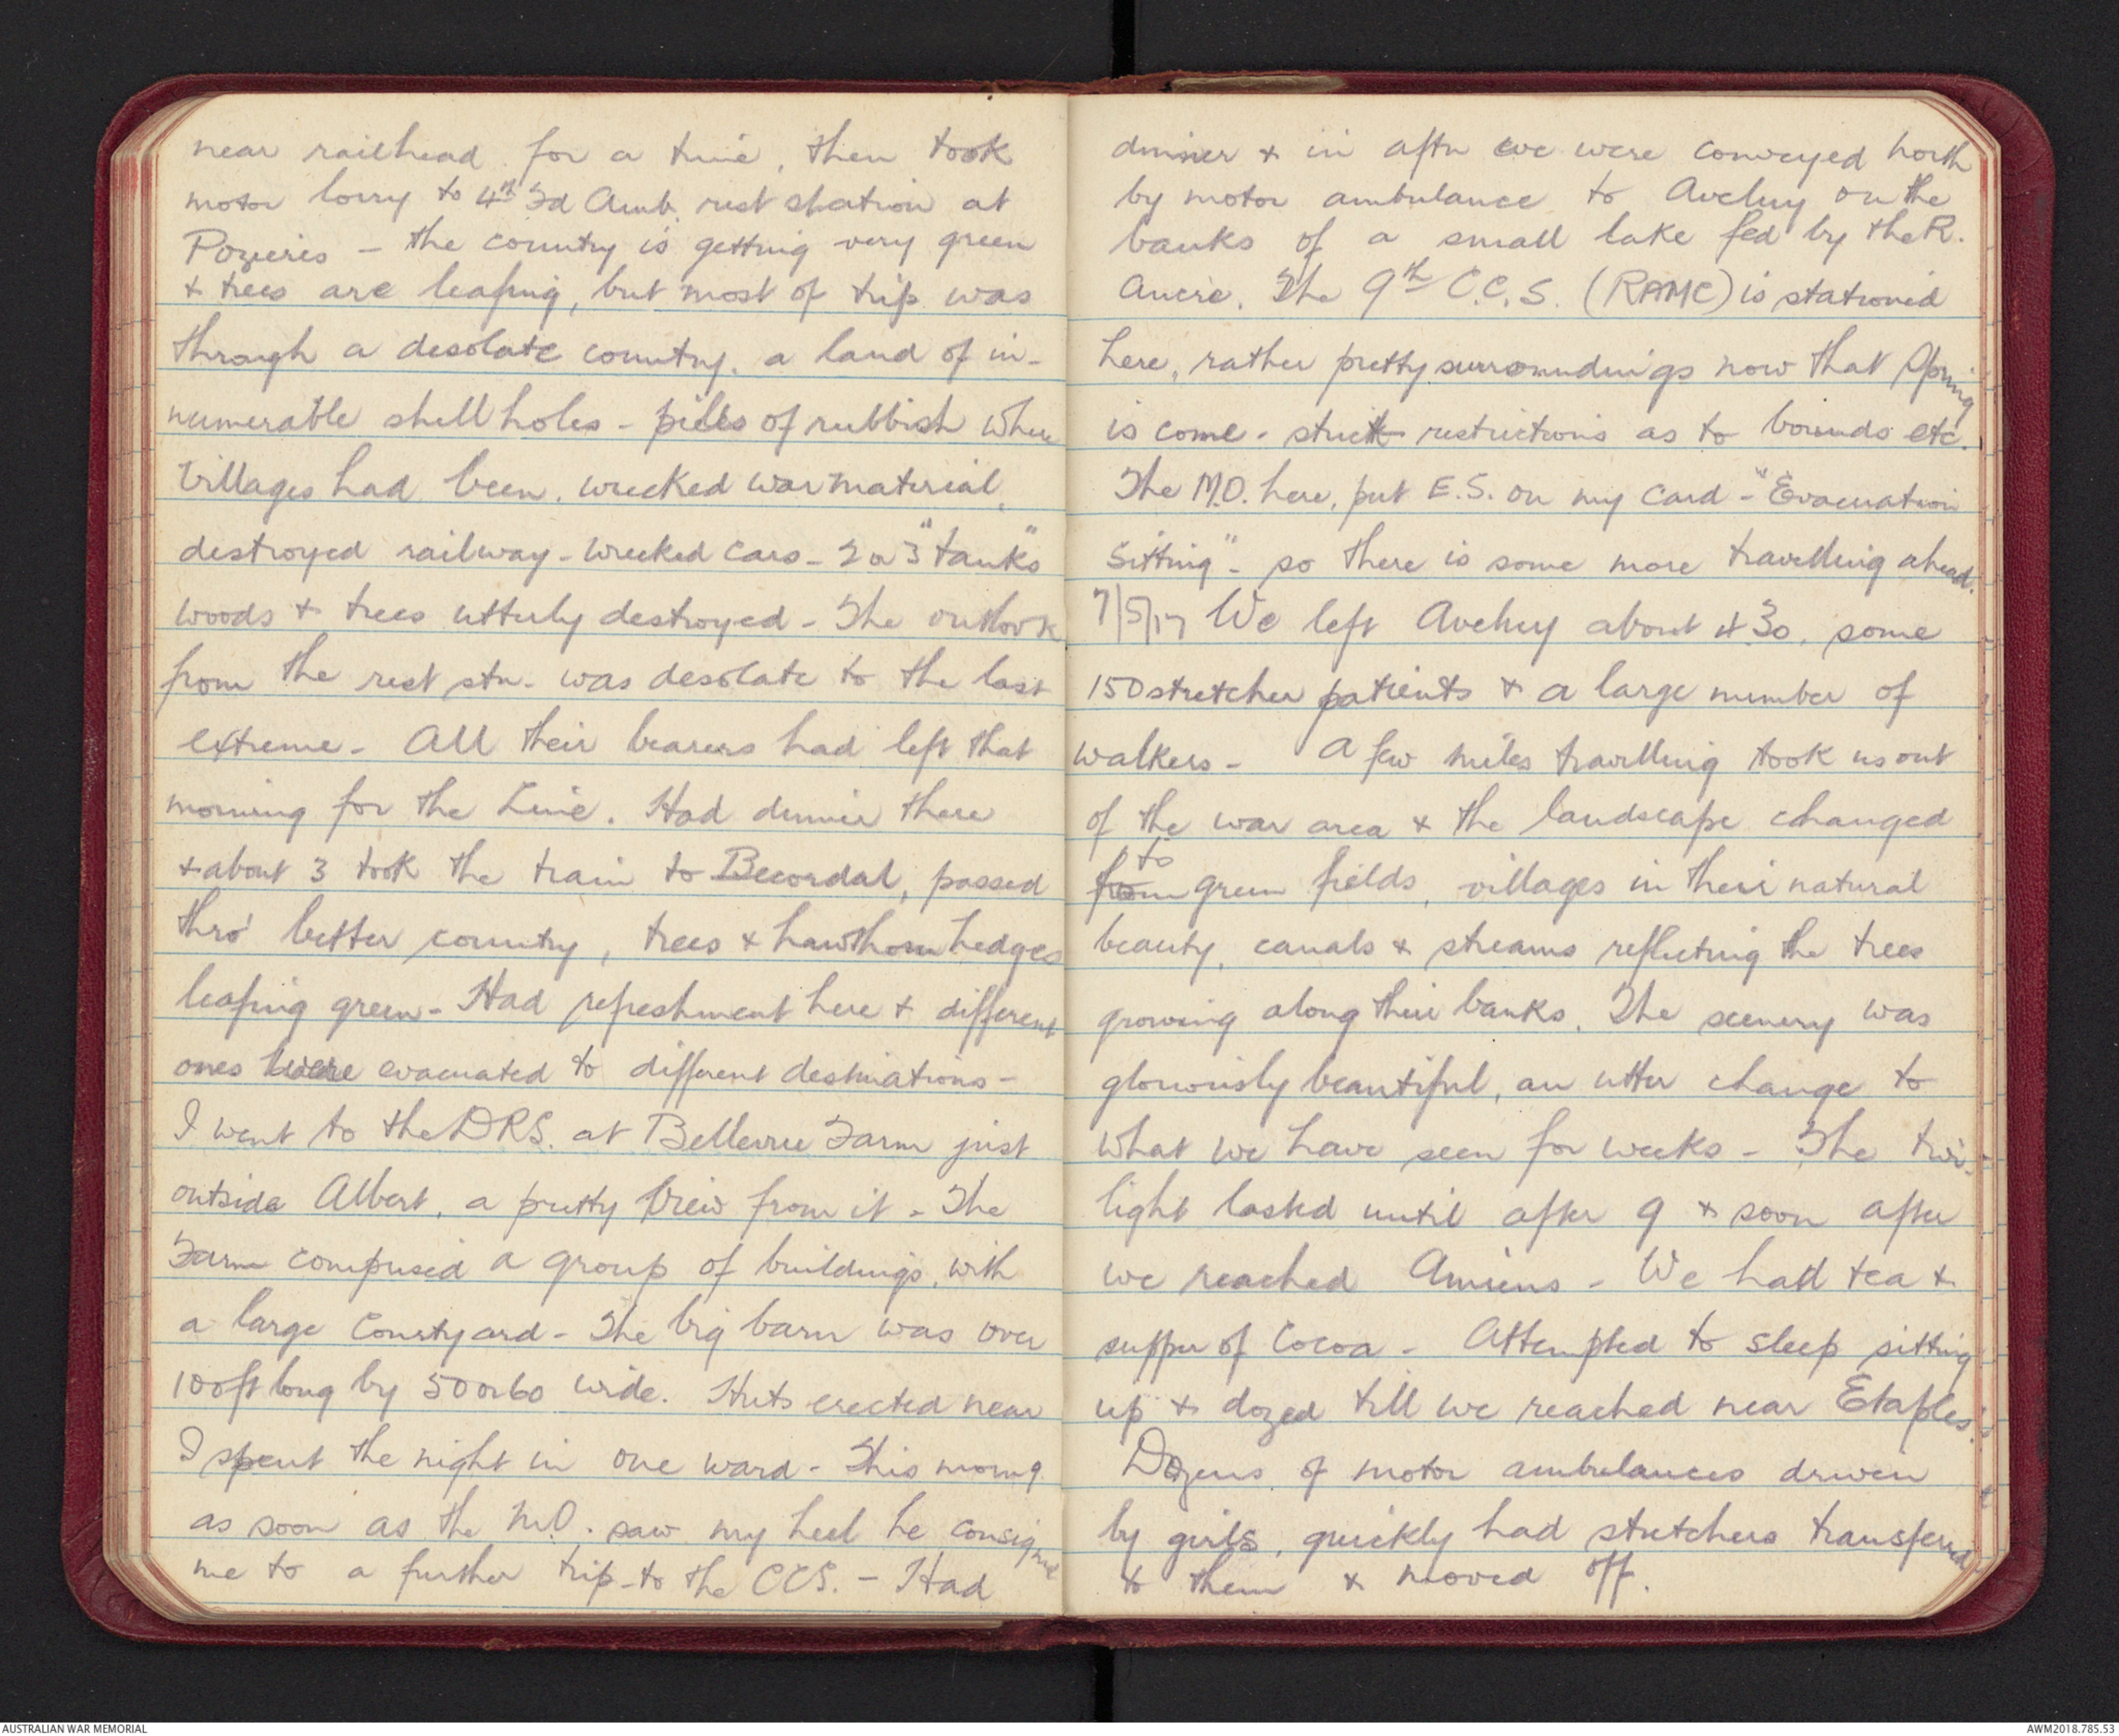 near railhead for a time, then took
motor lorry to 4th Fd Amb. rest station at
Pozieres - the country is getting very green
+ trees are leafing, but most of trip was
through a desolate country, a land of in-
numerable shell holes - piles of rubbish where
villages had been, wrecked war material,
destroyed railway - wrecked cars - 2 or 3 "tanks"
woods + trees utterly destroyed - The outlook
from the rest stn. was desolate to the last
extreme - All their bearers had left that
morning for the Line. Had dinner there
+ about 3 took the train to Becordal, passed
thro' better country, trees + hawthorn hedges
leafing green - Had refreshment here + different
ones were evacuated to different destinations -
I went to the DRS. at Bellevue Farm just
outside Albert, a pretty view from it - The
Farm comprised a group of buildings, with
a large Courtyard - The big barn was over
100ft long by 50 or 60 wide. Huts erected near
I spent the night in one ward - This morng
as soon as the M.O. saw my heel he consigned
me to a further trip - to the CCS. - Had
dinner + in aftn we were conveyed north
by motor ambulance to Aveluy on the
banks of a small lake fed by the R.
Ancre. The 9th C.C.S. (RAMC) is stationed
here, rather pretty surroundings now that Spring
is come - strict restrictions as to bounds etc.
The M.O. here, put E.S. on my card - "Evacuation
Sitting" - so there is some more travelling ahead.
7/5/17 We left Aveluy about 4.30, some
150 stretcher patients + a large number of
walkers - A few miles travelling took us out
of the war area + the landscape changed
to
from green fields, villages in their natural
beauty, canals + streams reflecting the trees
growing along their banks. The scenery was
gloriously beautiful, an utter change to
what we have seen for weeks - The twi-
light lasted until after 9 + soon after
we reached Amiens - We had tea +
supper of Cocoa - Attempted to sleep sitting
up + dozed till we reached near Etaples.
Dozens of motor ambulances driven
by girls, quickly had stretchers transferred
to them + moved off.
AUSTRALIAN WAR MEMORIAL
AWM2018.785.53